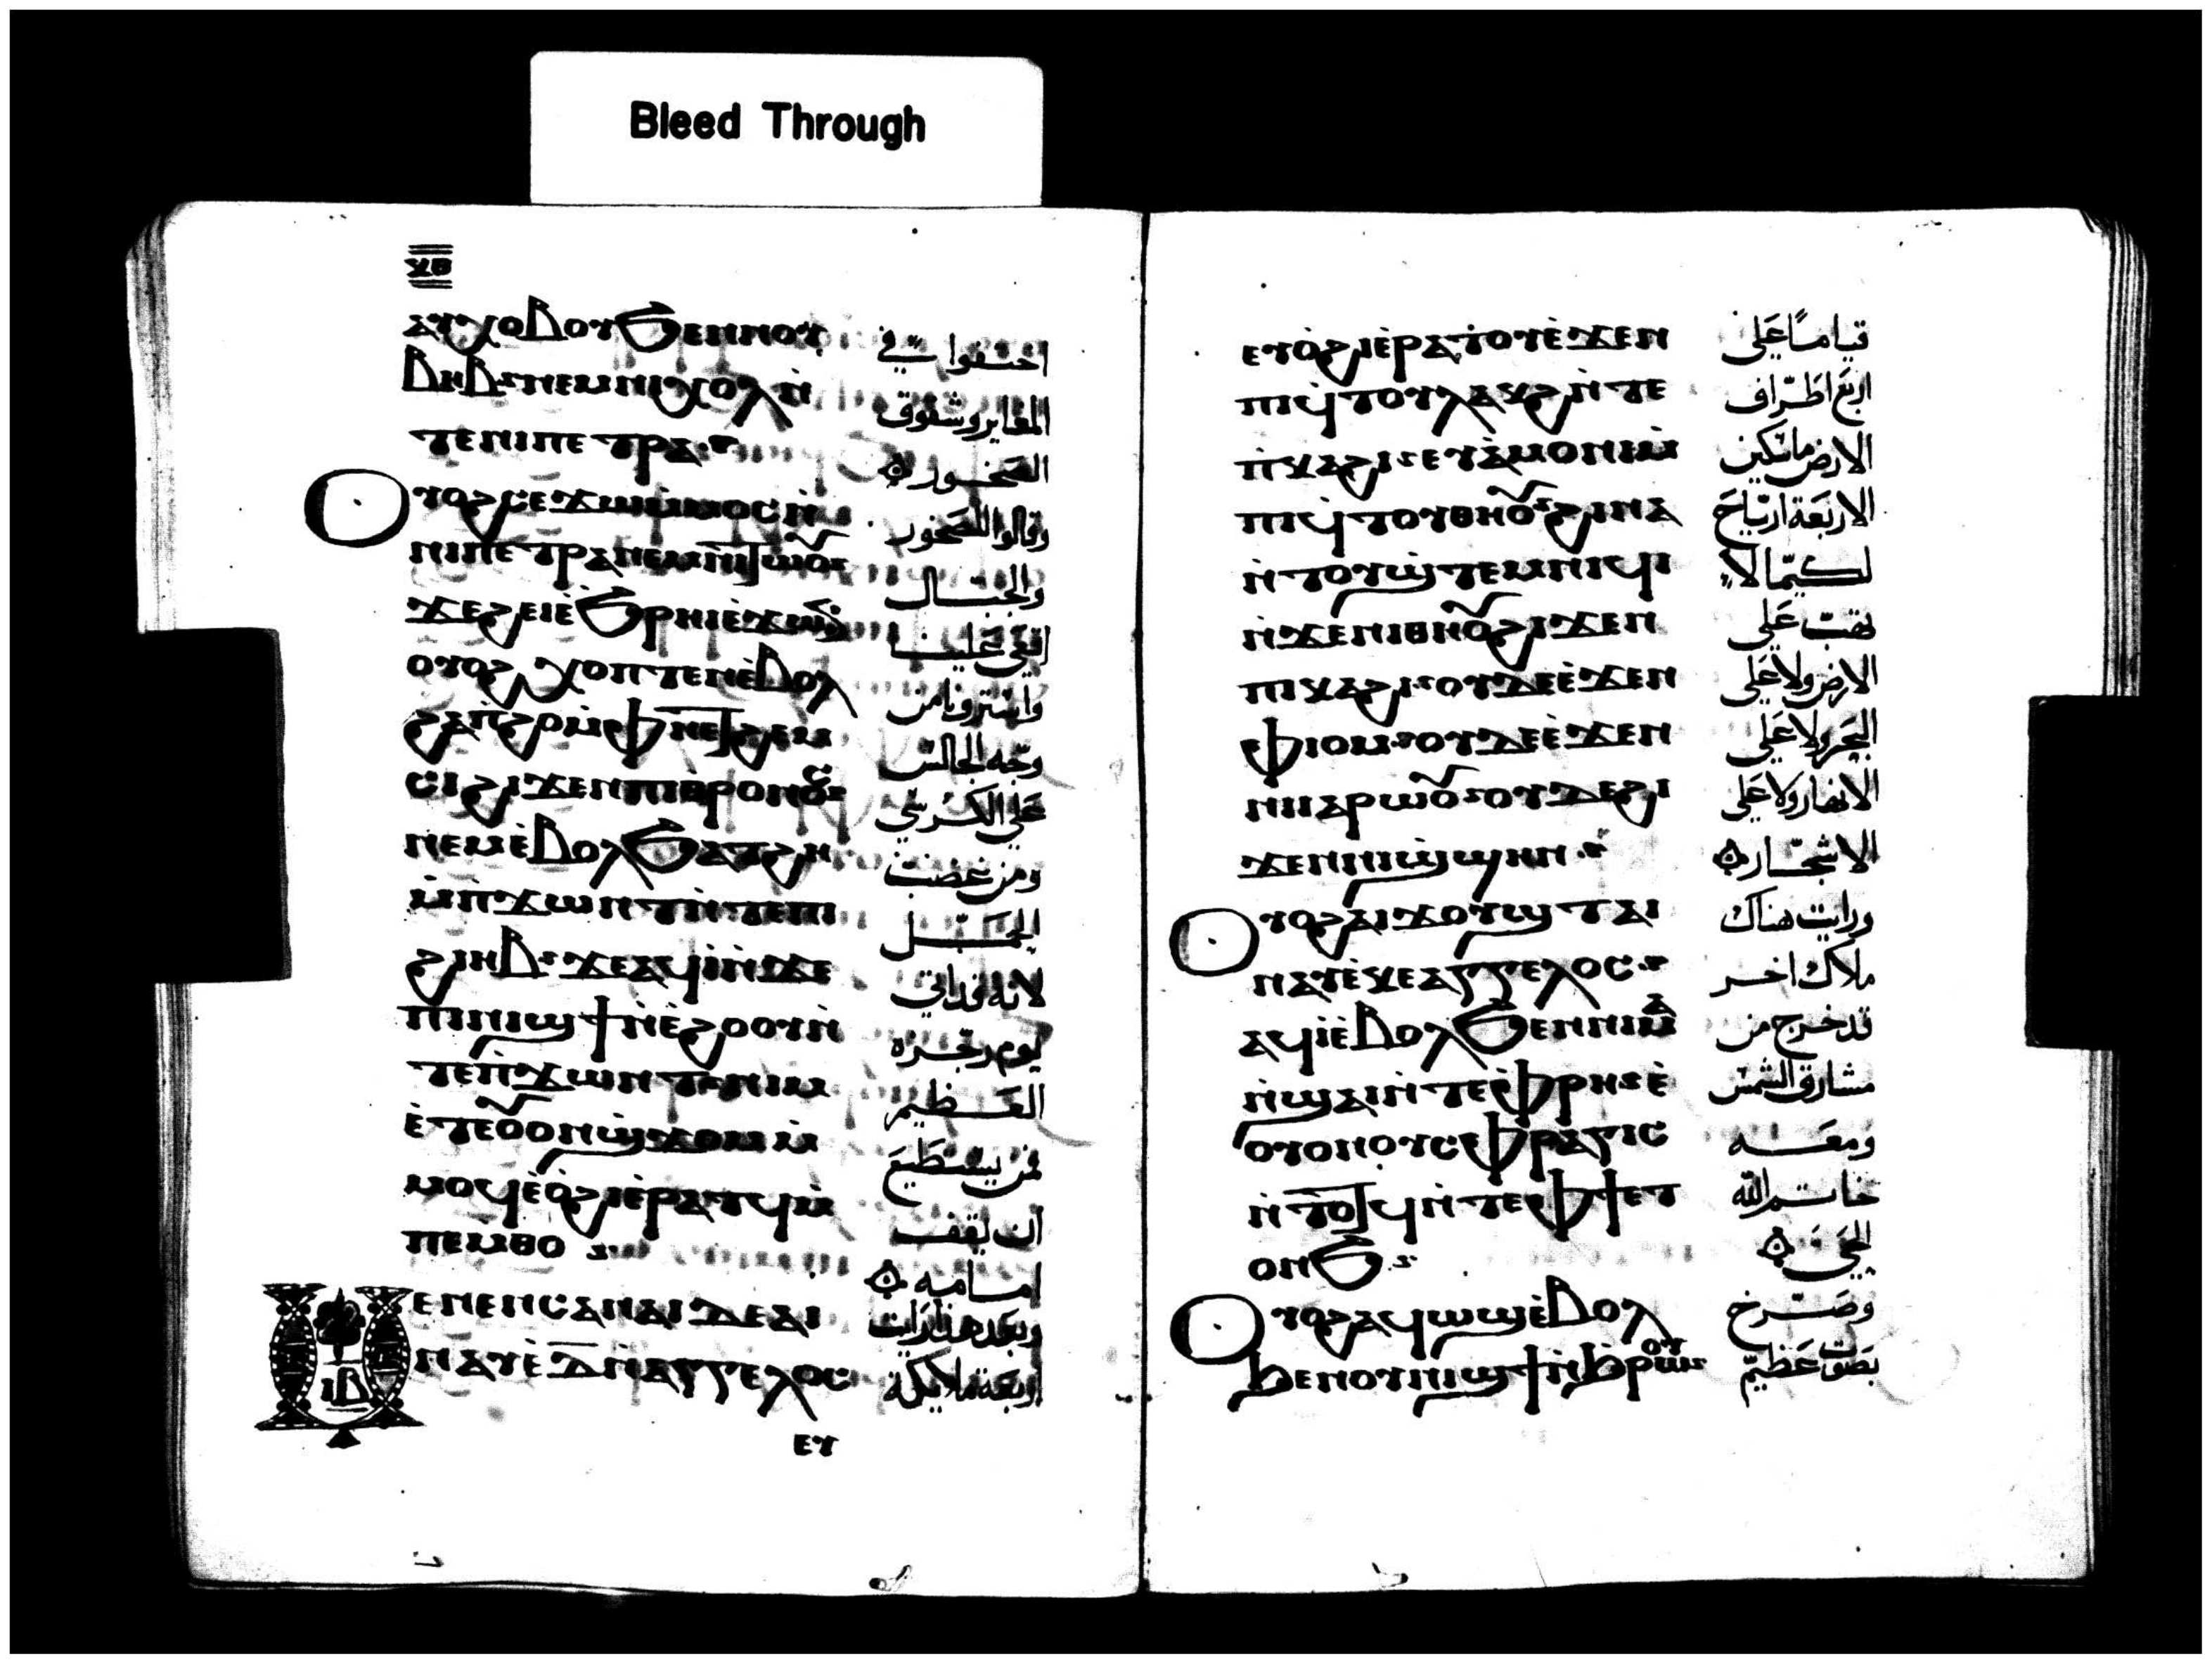 Bleed Through
ⲕⲃ
ⲁⲩⲭⲟⲃⲟⲩ ϧⲉⲛ ⲛⲟⲩ
ⲃⲏⲃ ⲛⲉⲙ ⲛⲓⲭⲟⲗ ⲛ̀
ⲧⲉ ⲛⲓⲡⲉⲧⲣⲁ
ⲟⲩⲟϩ ⲥⲉϫⲱ ⲙ̀ⲙⲟⲥ ⲛ̀
ⲛⲓⲡⲉⲧⲣⲁ ⲛⲉⲙ ⲛⲓⲧⲱⲟⲩ
ϫⲉ ϩⲉⲓ ⲉ̀ϧⲣⲏⲓ ⲉ̀ϫⲱⲛ
ⲟⲩⲟϩ ⲭⲟⲡⲧⲉⲛ ⲉ̀ⲃⲟⲗ
ϩⲁ ⲡ̀ϩⲟ ⲙ̀ⲫⲏ ⲉⲧϩⲉⲙ
ⲥⲓ ϩⲓϫⲉⲛ ⲡⲓⲑⲣⲟⲛⲟⲥ
ⲛⲉⲙ ⲉ̀ⲃⲟⲗ ϧⲁⲧϩⲏ
ⲙ̀ⲡ̀ϫⲱⲛⲧ ⲛ̀ⲧⲉ ⲡⲓ
ϩⲓⲏⲃ ϫⲉ ⲁϥⲓ̀ ⲛ̀ϫⲉ
ⲡⲓⲛⲓϣϯ ⲛ̀ⲉ̀ϩⲟⲟⲩ ⲛ̀
ⲧⲉ ⲡ̀ϫⲱⲛⲧ ⲛⲓⲙ
ⲉ̀ⲧⲉ ⲟⲩⲟⲛ ϣϫⲟⲙ ⲙ̀
ⲙⲟϥ ⲉ̀ⲟ̀ϩⲓ ⲉ̀ⲣⲁⲧϥ ⲙ̀
ⲡⲉⲙⲑⲟ
ⲙⲉⲛⲉⲛⲥⲁ ⲛⲁⲓ ⲇⲉ ⲁⲓ
ⲓⲃ
ⲛⲁⲩ ⲉ̀ ⲇ̅ ⲛ̀ⲁⲅⲅⲉⲗⲟⲥ
ⲉⲩ
اختفوا في
المغاير وشقوق
الصخور
وقالوا للصخور
والجبال
اقعي علينا
واسترونا من
وجه الجالس
على الكرسي
ومن غضب
الحمل
لانه قد اتى
يوم رجزه
العظيم
من يستطيع
ان يقف
امامه
وبعد هذا رايت
اربعة ملايكة
ⲉⲩⲟ̀ϩⲓ ⲉ̀ⲣⲁⲧⲟⲩ ⲉ̀ϫⲉⲛ
ⲡⲓϥⲧⲟⲩ ⲗⲁⲕϩ ⲛ̀ⲧⲉ
ⲡ̀ⲕⲁϩⲓ ⲉⲩⲁ̀ⲙⲟⲛⲓ ⲙ̀
ⲡⲓϥⲧⲟⲩ ⲑⲏⲟⲩ ϩⲓⲛⲁ
ⲛ̀ⲧⲟⲩϣⲧⲉⲙⲛⲓϥⲓ
ⲛ̀ϫⲉ ⲛⲓⲑⲏⲟⲩ ϩⲓϫⲉⲛ
ⲡⲓⲕⲁϩⲓ ⲟⲩⲇⲉ ⲉ̀ϫⲉⲛ
ⲫⲓⲟⲙ ⲟⲩⲇⲉ ⲉ̀ϫⲉⲛ
ⲛⲓⲓⲁⲣⲱⲟⲩ ⲟⲩⲇⲉ ϩⲓ
ϫⲉⲛ ⲛⲓϣϣⲏⲛ
ⲟⲩⲟϩ ⲁⲓϫⲟⲩϣⲧ ⲁⲓ
ⲛⲁⲩ ⲉ̀ⲕⲉⲁⲅⲅⲉⲗⲟⲥ
ⲁϥⲓ̀ ⲉ̀ⲃⲟⲗ ϧⲉⲛ ⲛⲓⲙⲁ
ⲛ̀ϣⲁⲓ ⲛ̀ⲧⲉ ⲫ̀ⲣⲏ ⲉ̀
ⲟⲩⲟⲛ ⲟⲩⲥⲫⲣⲁⲅⲓⲥ
ⲛ̀ⲧⲟⲧϥ ⲛ̀ⲧⲉ ⲫϯ ⲉⲧ
ⲟⲛϧ
ⲟⲩⲟϩ ⲁϥⲱϣ ⲉ̀ⲃⲟⲗ
ϧⲉⲛ ⲟⲩⲛⲓϣϯ ⲛ̀ϧ̀ⲣⲱⲟⲩ
قياما على
اربع اطراف
الارض ماسكين
الاربعة ارياح
لكيما لا
تهب على
الارض ولا على
البحر ولا على
الانهار ولا على
الاشجار
ورايت هناك
ملاك اخر
قد خرج من
مشارق الشمس
ومعه
خاتم الله
الحي
وصرخ
بصوت عظيم